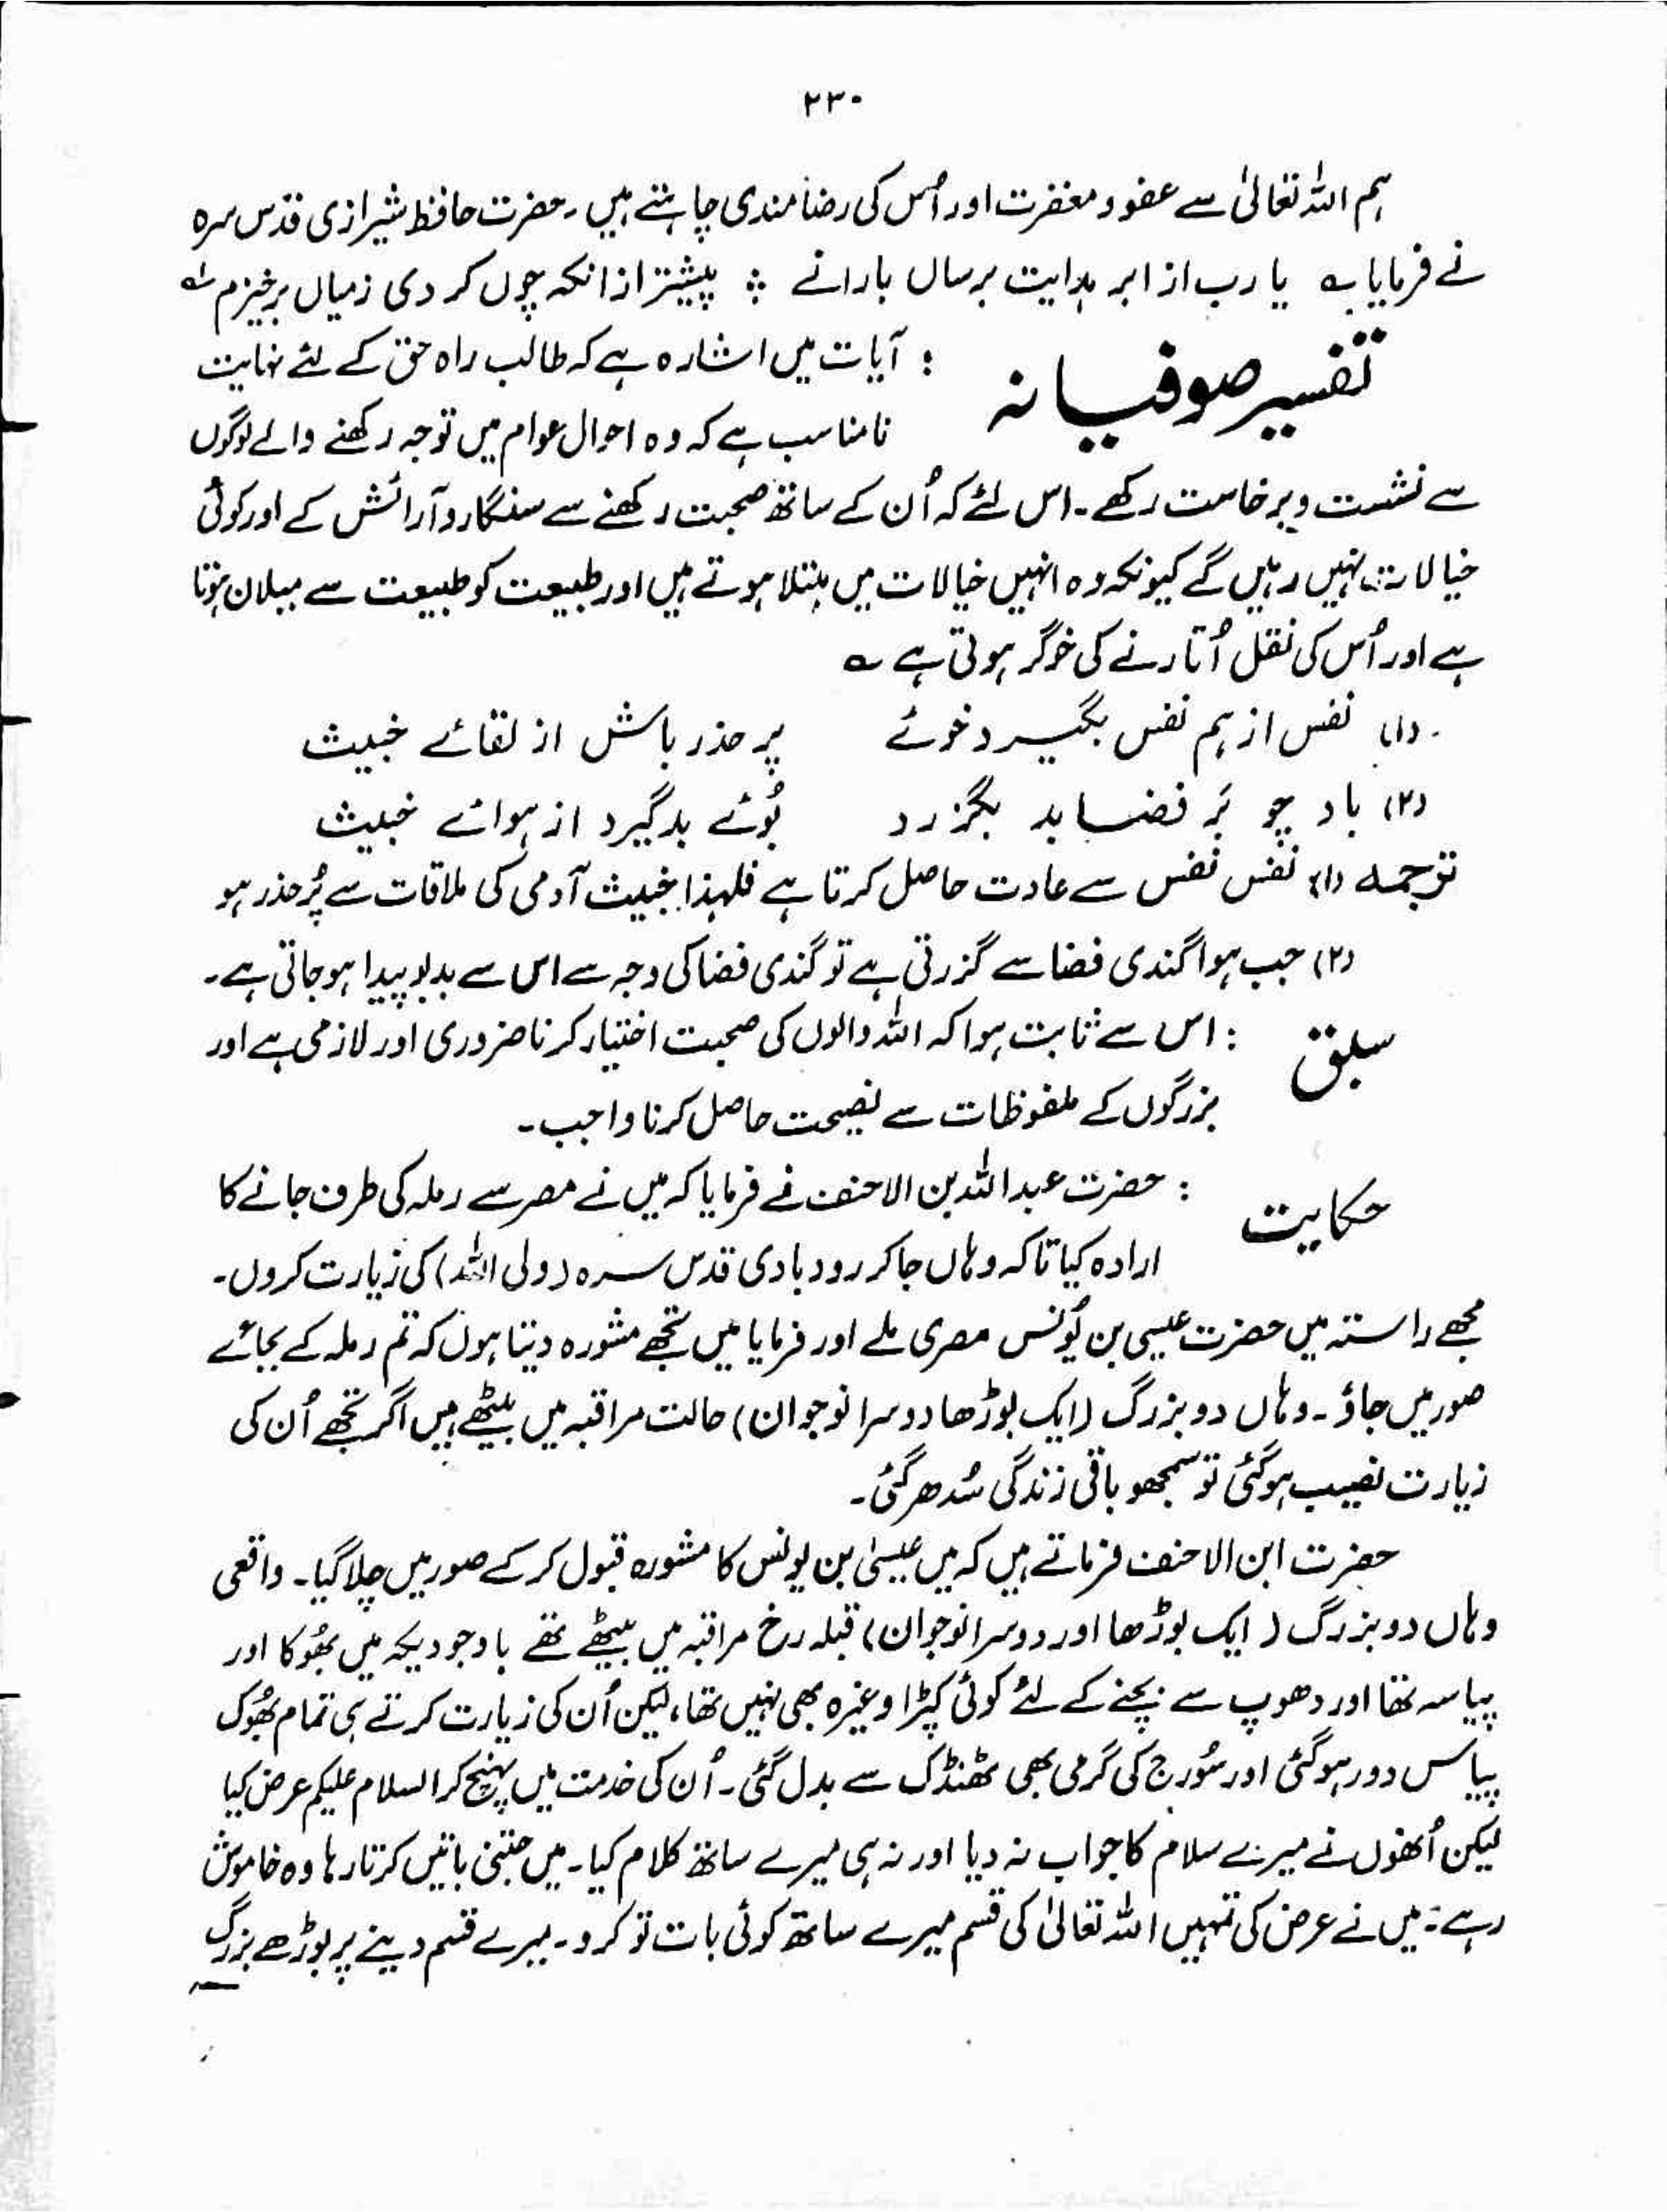 ۲۳۰
ہم اللہ تعالیٰ سے عفو و مغفرت اور اُس کی رضامندی چاہتے ہیں۔ حضرت حافظ شیرازی قدس سرہ
نے فرمایا ؎ یا رب از ابر ہدایت برساں بارانے ؞ پیشتر ازانکہ چوں گر دی زمیاں برخیزم
تفسیر صوفیانہ : آیات میں اشارہ ہے کہ طالب راہ حق کے لئے نہایت
نامناسب ہے کہ وہ احوال عوام میں توجہ رکھنے والے لوگوں
سے نشست و برخاست رکھے۔ اس لئے کہ اُن کے ساتھ صحبت رکھنے سے سنگار و آرائش کے اور کوئی
خیالات نہیں رہیں گے کیونکہ وہ انہیں خیالات میں مبتلا ہوتے ہیں اور طبیعت کو طبیعت سے میلان ہوتا
ہے اور اُس کی نقل اُتارنے کی خوگر ہوتی ہے ؎
(۱) نفس از ہم نفس بگیرد خوئے پر حذر باش از لقائے خبیث
(۲) باد چو بَر فضا بد بگزرد بُوئے بدگیرد از ہوائے خبیث
ترجمہ (۱) نفس نفس سے عادت حاصل کرتا ہے فلہذا خبیث آدمی کی ملاقات سے پُر حذر ہو
(۲) جب ہوا گندی فضا سے گزرتی ہے تو گندی فضا کی وجہ سے اس سے بدبو پیدا ہوجاتی ہے۔
سبق : اس سے ثابت ہوا کہ اللہ والوں کی صحبت اختیار کرنا ضروری اور لازمی ہے اور
بزرگوں کے ملفوظات سے نصیحت حاصل کرنا واجب۔
حکایت : حضرت عبداللہ بن الاحنف نے فرمایا کہ میں نے مصر سے رملہ کی طرف جانے کا
ارادہ کیا تاکہ وہاں جاکر رودبادی قدس سرہ (ولی اللہ) کی زیارت کروں۔
مجھے راستہ میں حضرت عیسی بن یُونس مصری ملے اور فرمایا میں تجھے مشورہ دیتا ہوں کہ تم رملہ کے بجائے
صور میں جاؤ۔ وہاں دو بزرگ (ایک بوڑھا دوسرا نوجوان) حالت مراقبہ میں بیٹھے ہیں اگر تجھے اُن کی
زیارت نصیب ہوگئی تو سمجھو باقی زندگی سُدھر گئی۔
حضرت ابن الاحنف فرماتے ہیں کہ میں عیسیٰ بن یونس کا مشورہ قبول کر کے صور میں چلا گیا۔ واقعی
وہاں دو بزرگ ( ایک بوڑھا اور دوسرا نوجوان) قبلہ رخ مراقبہ میں بیٹھے تھے باوجودیکہ میں بھُوکا اور
پیاسہ تھا اور دھوپ سے بچنے کے لئے کوئی کپڑا وغیرہ بھی نہیں تھا، لیکن اُن کی زیارت کرتے ہی تمام بھُوک
پیاس دور ہوگئی اور سُورج کی گرمی بھی ٹھنڈک سے بدل گئی۔ اُن کی خدمت میں پہنچ کر السلام علیکم عرض کیا
لیکن اُنھوں نے میرے سلام کا جواب نہ دیا اور نہ ہی میرے ساتھ کلام کیا۔ میں جتنی باتیں کرتا رہا وہ خاموش
رہے۔ میں نے عرض کی تمہیں اللہ تعالیٰ کی قسم میرے ساتھ کوئی بات تو کرو۔ میرے قسم دینے پر بوڑھے بزرگ